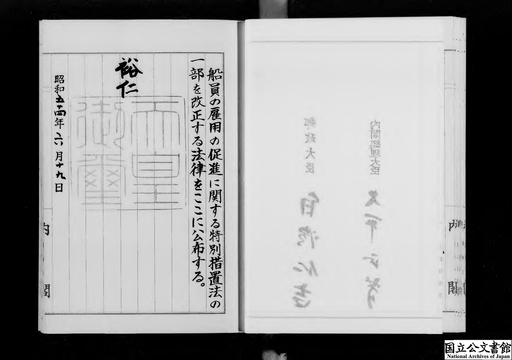 船員の雇用の促進に関する特別措置法の
一部を改正する法律をここに公布する。
裕仁
天皇
御璽
昭和五十四年六月十九日
内閣
内閣総理大臣
大平正芳
郵政大臣
白浜仁吉
内閣
国立公文書館
National Archives of Japan